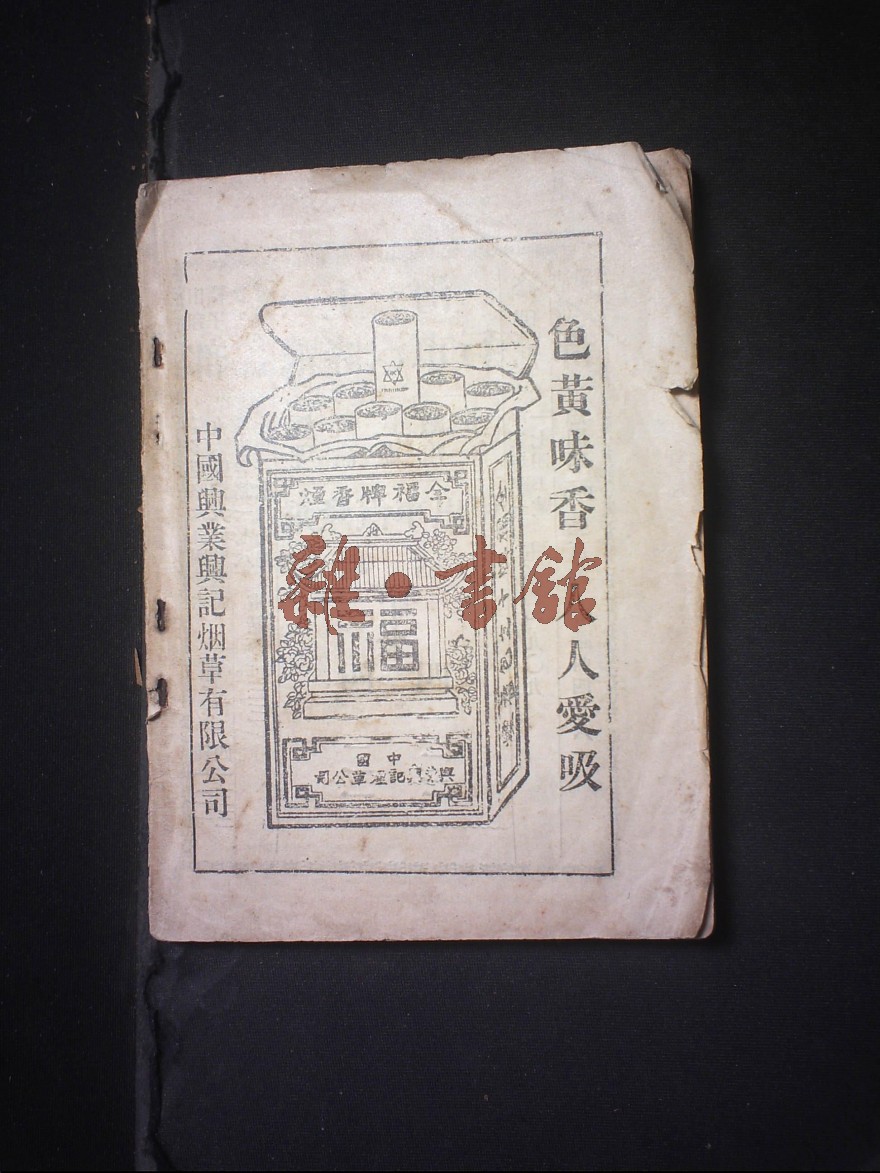 色黃味香人人愛吸
全福牌香烟
福
中國
興業興記烟草公司
中國興業興記烟草有限公司
雜·書館